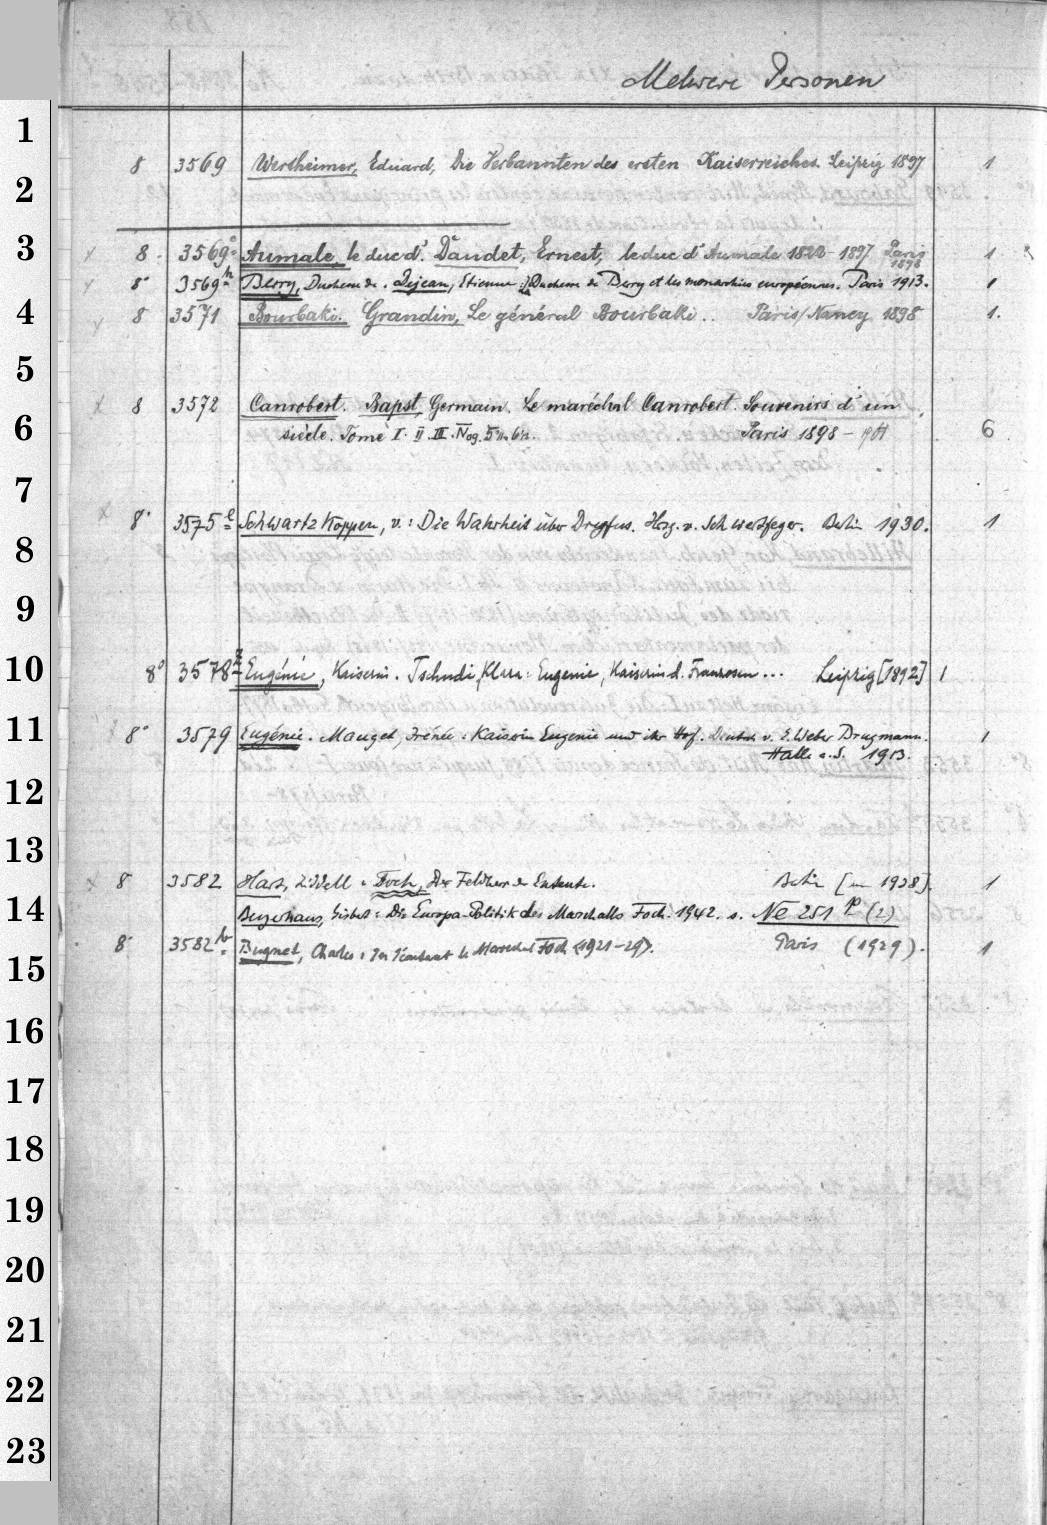 Mehrere Personen
1
8 3569 Wertheimer, Eduard, Die Verbannten des ersten Kaiserreiches. Leipzig 1897 1
2
3
8. 3569a Aumale, le duc d'. Daudet, Ernest, le duc d'Aumale 1822-1897 Paris 1898 1
8° 3569h Berry, Duchesse de. Dejean, Etienne: La Duchesse de Berry et les monarchies européennes. Paris 1913. 1
4
8 3571 Bourbaki. Grandin, Le général Bourbaki.. Paris/Nancy 1898 1.
5
8 3572 Canrobert. Bapst, Germain. Le maréchal Canrobert. Souvenirs d'un
6
siècle. Tome I. II. III. IV 5 6 Paris 1898 - 6
7
8° 3575e Schwartzkoppen, v.: Die Wahrheit über Dreyfus. Hrsg. v. Schwertfeger. Berlin 1930. 1
8
9
10
8° 3578 Eugénie, Kaiserin. Tschudi, Klara: Eugenie, Kaiserin d. Franzosen... Leipzig [1892] 1
11
8° 3579 Eugénie. Mauget, Irénée: Kaiserin Eugenie und ihr Hof. Deutsch v. E. Weber Brugmann.
Halle a. S. 1913. 1
12
13
8 3582 Hart, Liddell: Foch, Der Feldherr der Entente. Berlin [um 1938]. 1
14
Beyerhaus, Gisbert: Die Europa-Politik des Marschalls Foch. 1942. s. Ne 251 p (2)
8° 3582b Bugnet, Charles: En écoutant le Maréchal Foch (1921-29). Paris (1929). 1
15
16
17
18
19
20
21
22
23